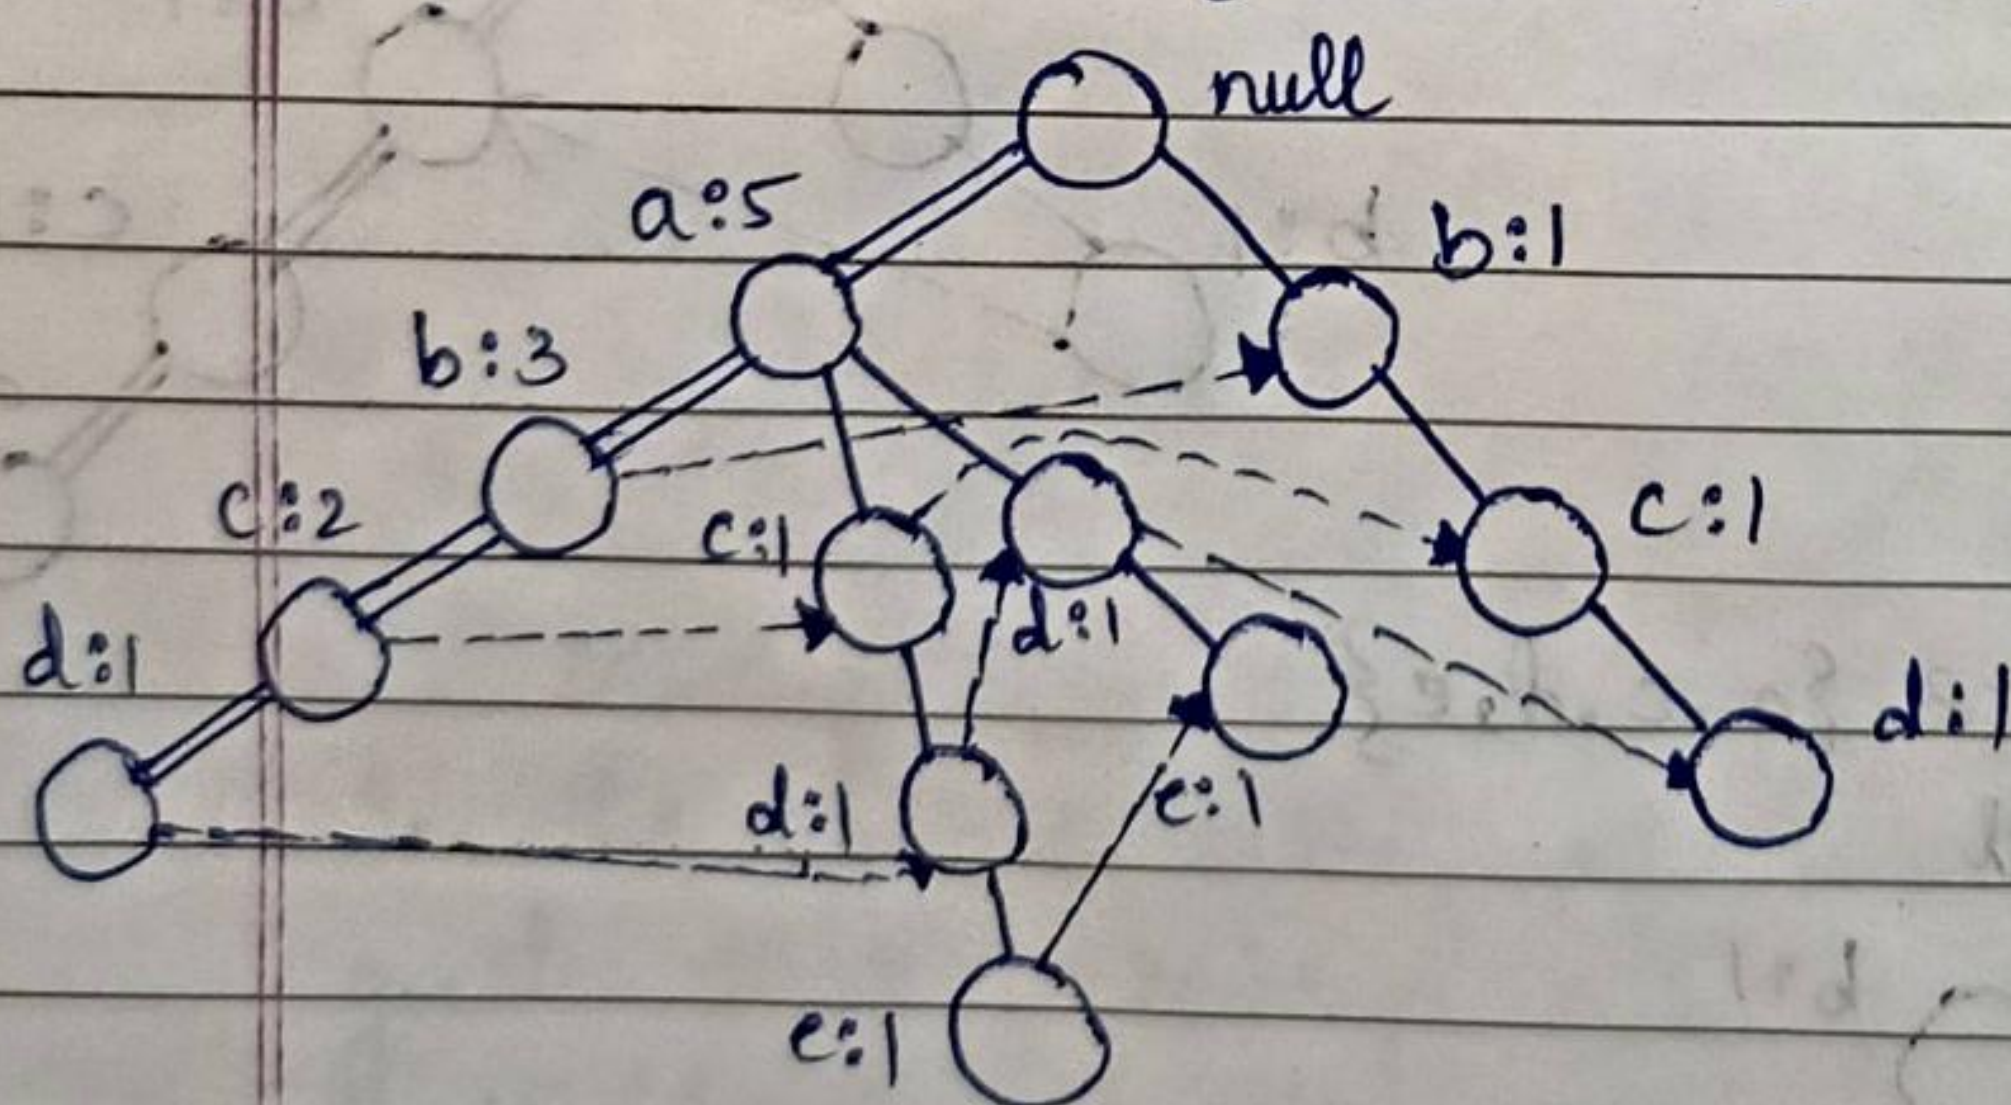 null
a:5
b:1
b:3
c:2
c:1
c:1
d:1
d:1
d:1
d:1
e:1
e:1